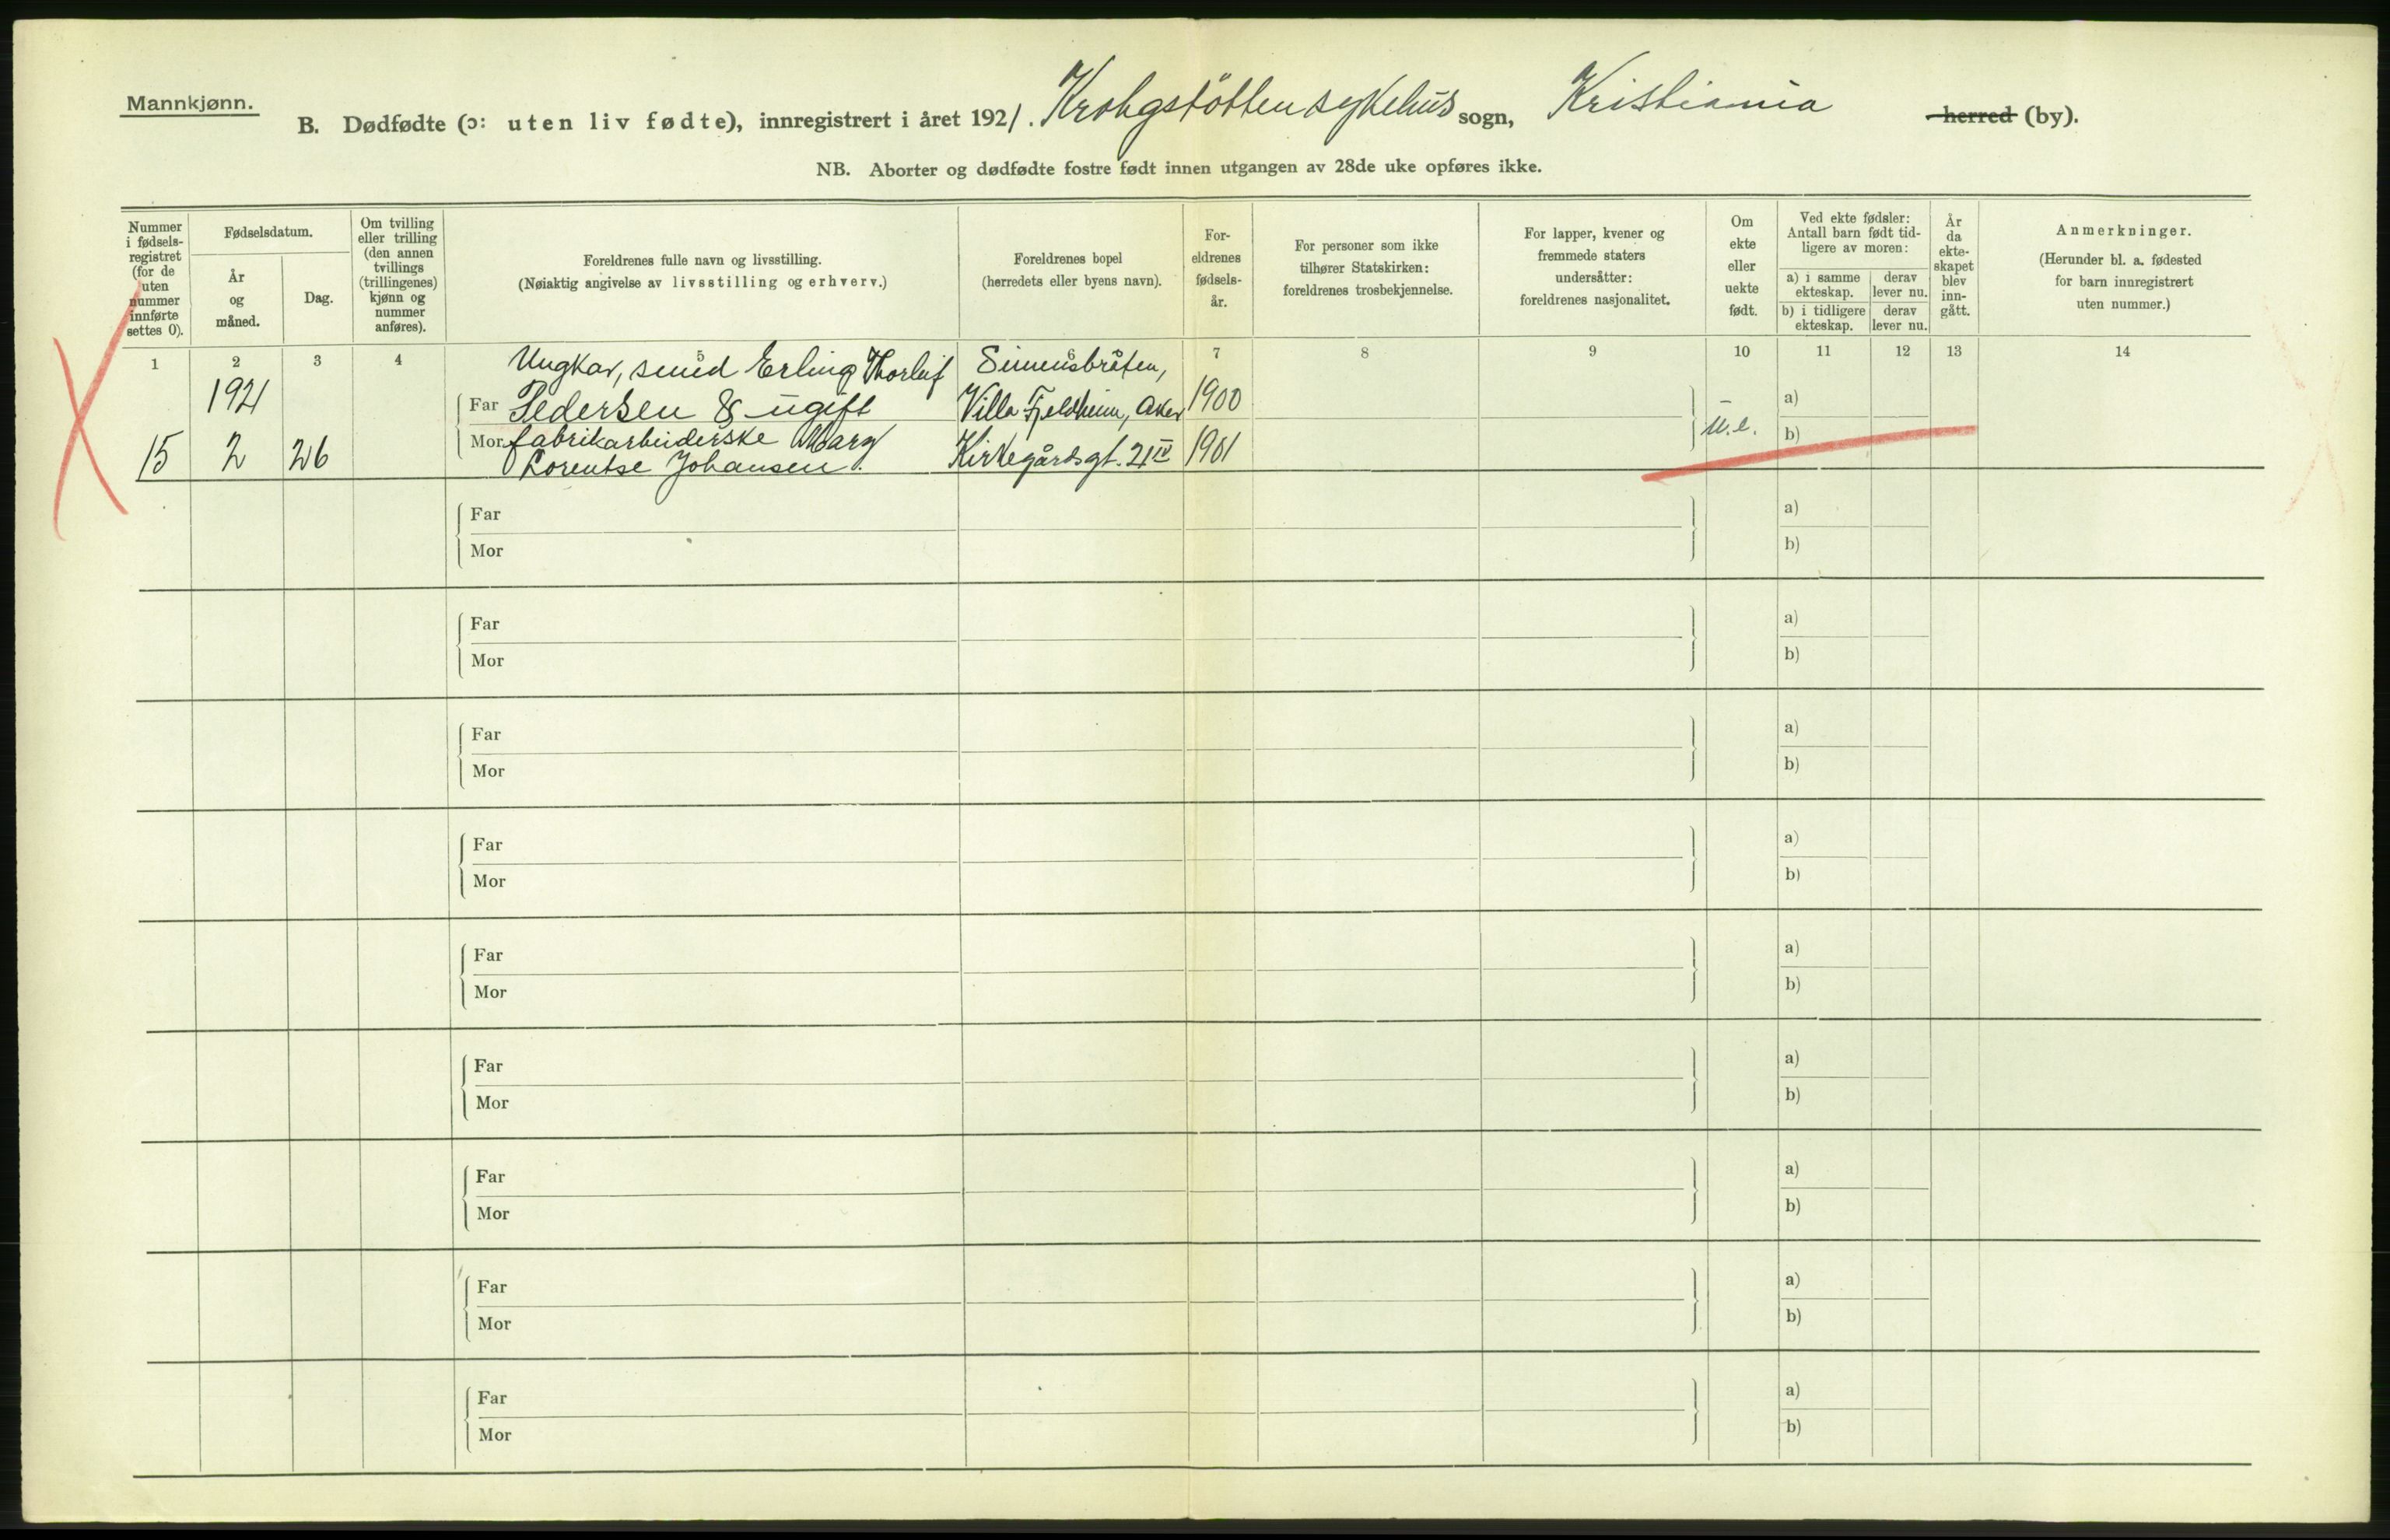 Mannkjønn.
B. Dødfødte (ɔ: uten liv fødte), innregistrert i året 1921. Krohgstöttensykehus sogn, Kristiania herred (by).
NB. Aborter og dødfødte fostre født innen utgangen av 28de uke opføres ikke.
Nummer i fødsels-registret (for de uten nummer innførte settes 0).
Fødselsdatum.
År og måned.
Dag.
Om tvilling eller trilling (den annen tvillings (trillingenes) kjønn og nummer anføres).
Foreldrenes fulle navn og livsstilling.
(Nøiaktig angivelse av livsstilling og erhverv.)
Foreldrenes bopel
(herredets eller byens navn).
For-eldrenes fødsels-år.
For personer som ikke tilhører Statskirken: foreldrenes trosbekjennelse.
For lapper, kvener og fremmede staters undersåtter: foreldrenes nasjonalitet.
Om ekte eller uekte født.
Ved ekte fødsler: Antall barn født tid-ligere av moren:
a) i samme ekteskap.
derav lever nu.
b) i tidligere ekteskap.
derav lever nu.
År da ekte-skapet blev inn-gått.
Anmerkninger.
(Herunder bl. a. fødested for barn innregistrert uten nummer.)
1 2 3 4 5 6 7 8 9 10 11 12 13 14
Ungkar, smed Erling Thorleif Simensbråten,
1921 Far Pedersen & ugift Villa Fjeldheim, Aker 1900 a)
15 2 26 Mor fabrikarbeiderske Mary Kirkegårdsgt. 21 IV 1901 u.e. b)
Lorentse Johansen.
Far a)
Mor b)
Far a)
Mor b)
Far a)
Mor b)
Far a)
Mor b)
Far a)
Mor b)
Far a)
Mor b)
Far a)
Mor b)
Far a)
Mor b)
Far a)
Mor b)